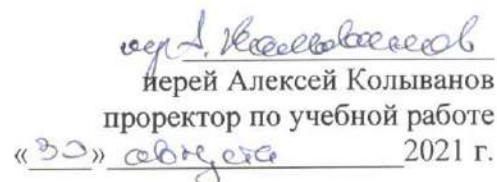 иер. А. Колыванов
иерей Алексей Колыванов
проректор по учебной работе
«30» августа 2021 г.